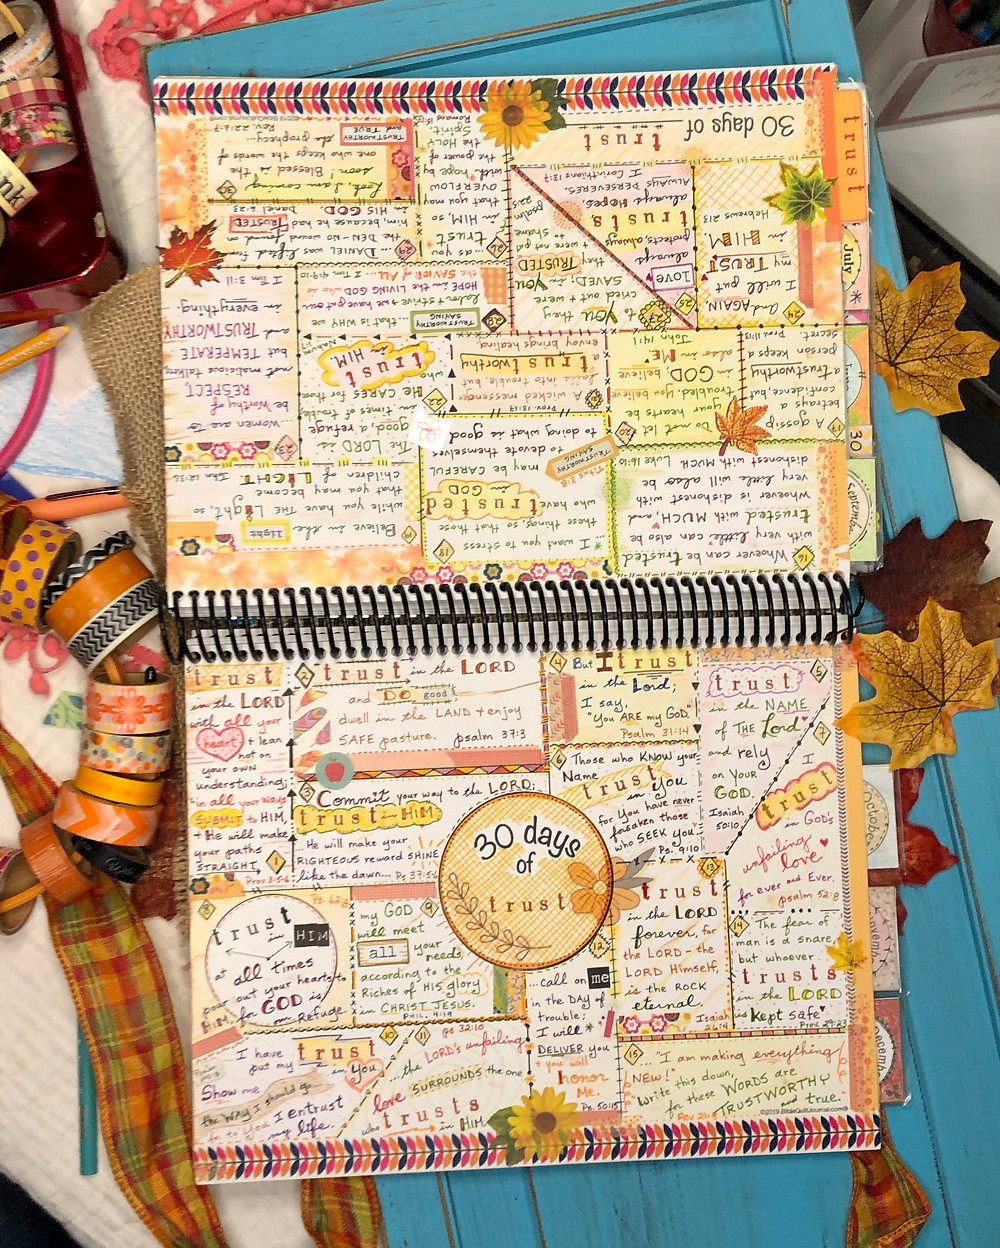 trust
in the LORD
with all your
heart + lean
not on
your own
understanding;
in all your ways
SUBMIT to HIM,
+ He will make
your paths
STRAIGHT.
1
Prov 3:5-6
2
trust in the LORD
and DO good;
dwell in the LAND + enjoy
SAFE pasture. psalm 37:3
3
Commit your way to the LORD;
trust in HIM
He will make your
RIGHTEOUS reward SHINE
like the dawn... Ps 37:5-6
4
But I trust
in the Lord;
I say,
"you ARE my GOD."
Psalm 31:14
5
trust
in the NAME
of THE Lord
and rely
on YOUR
GOD.
Isaiah
50:10
6
Those who KNOW your
Name
trust in you
for You have never
forsaken those
who SEEK you.
Ps. 9:10
7
I
trust
in God's
unfailing
love
for ever and Ever.
psalm 52:8
30 days
of
trust
8
Ps 62:8
trust
in HIM
at all times
pour out your hearts to
HIM, for GOD is
our Refuge.
9
my GOD
will meet
all your
needs,
according to the
Riches of HIS glory
in CHRIST JESUS.
PHIL. 4:19
10
I have
put my trust
in You
Show me
the WAY I should go...
for to You I entrust
my life.
11
Ps 32:10
...the LORD's unfailing
love SURROUNDS the one
who trusts in HIM
12
...call on me
in the DAY of
trouble;
I will
DELIVER you
+ you will
honor
Me.
Ps. 50:15
13
trust
in the LORD
forever, for
the LORD - the
LORD Himself,
is the ROCK
eternal.
Isaiah
26:4
14
The fear of
man is a snare,
but whoever
trusts
in the LORD
is kept safe.
Prov 29:23
15
"I am making everything
NEW!" Write this down,
for these WORDS are
TRUSTWORTHY
and true.
Rev 21:5
©2019 BibleQuiltJournal.com®
16
Whoever can be trusted
with very little can also be
trusted with MUCH, and
whoever is dishonest with
very little will also be
dishonest with MUCH. Luke 16:10
17
A gossip
betrays a
confidence, but
a trustworthy
person keeps a
secret.
Prov 11:13
18
*... I want you to stress
these things, so that those
who have
trusted
in GOD
may be CAREFUL
to devote themselves
to doing what is good
TRUSTWORTHY
SAYING
Titus 3:8
19
Believe in the light
while you have the Light, so
that you may become
Children of LIGHT
John 12:36
20
Do not let
your hearts be
troubled. You
believe in GOD;
also in ME
John 14:1
A wicked messenger
falls into trouble, but
a trustworthy
envoy brings healing
Prov. 13:17
The LORD is
good, a refuge
in times of trouble.
HE CARES for those
who
trust
in HIM
Nahum
Women are to
be Worthy of
RESPECT,
not malicious talkers
but TEMPERATE
and TRUSTWORTHY
in everything.
1 Tim 3:11
24
And AGAIN,
I will put
my TRUST
in HIM
Hebrews 2:13
25
LOVE
always
protects, always
trusts,
always HOPES,
ALWAYS PERSEVERES.
1 Corinthians 13:7
26
...as you
trust
in HIM, so
that you may
OVERFLOW
with hope by
the power of
the HOLY
Spirit.
27
To YOU they
cried out + were
SAVED; in YOU
they TRUSTED
+ were not put
to shame
psalm
22:5
28
TRUSTWORTHY
SAYING
...that is WHY we
labor + strive
we have put our
HOPE in the LIVING GOD
the SAVIOR of ALL
1 Tim 4:9-10
29
...DANIEL was lifted from
the DEN - NO wound found on
him, because he had TRUSTED
in HIS GOD. Daniel 6:23
30
Look, I am coming
soon! Blessed is the
one who keeps the words of
the prophecy
TRUSTWORTHY
and TRUE
Rev. 22:1-7
30 days of trust
trust
July
30
September
October
November
December